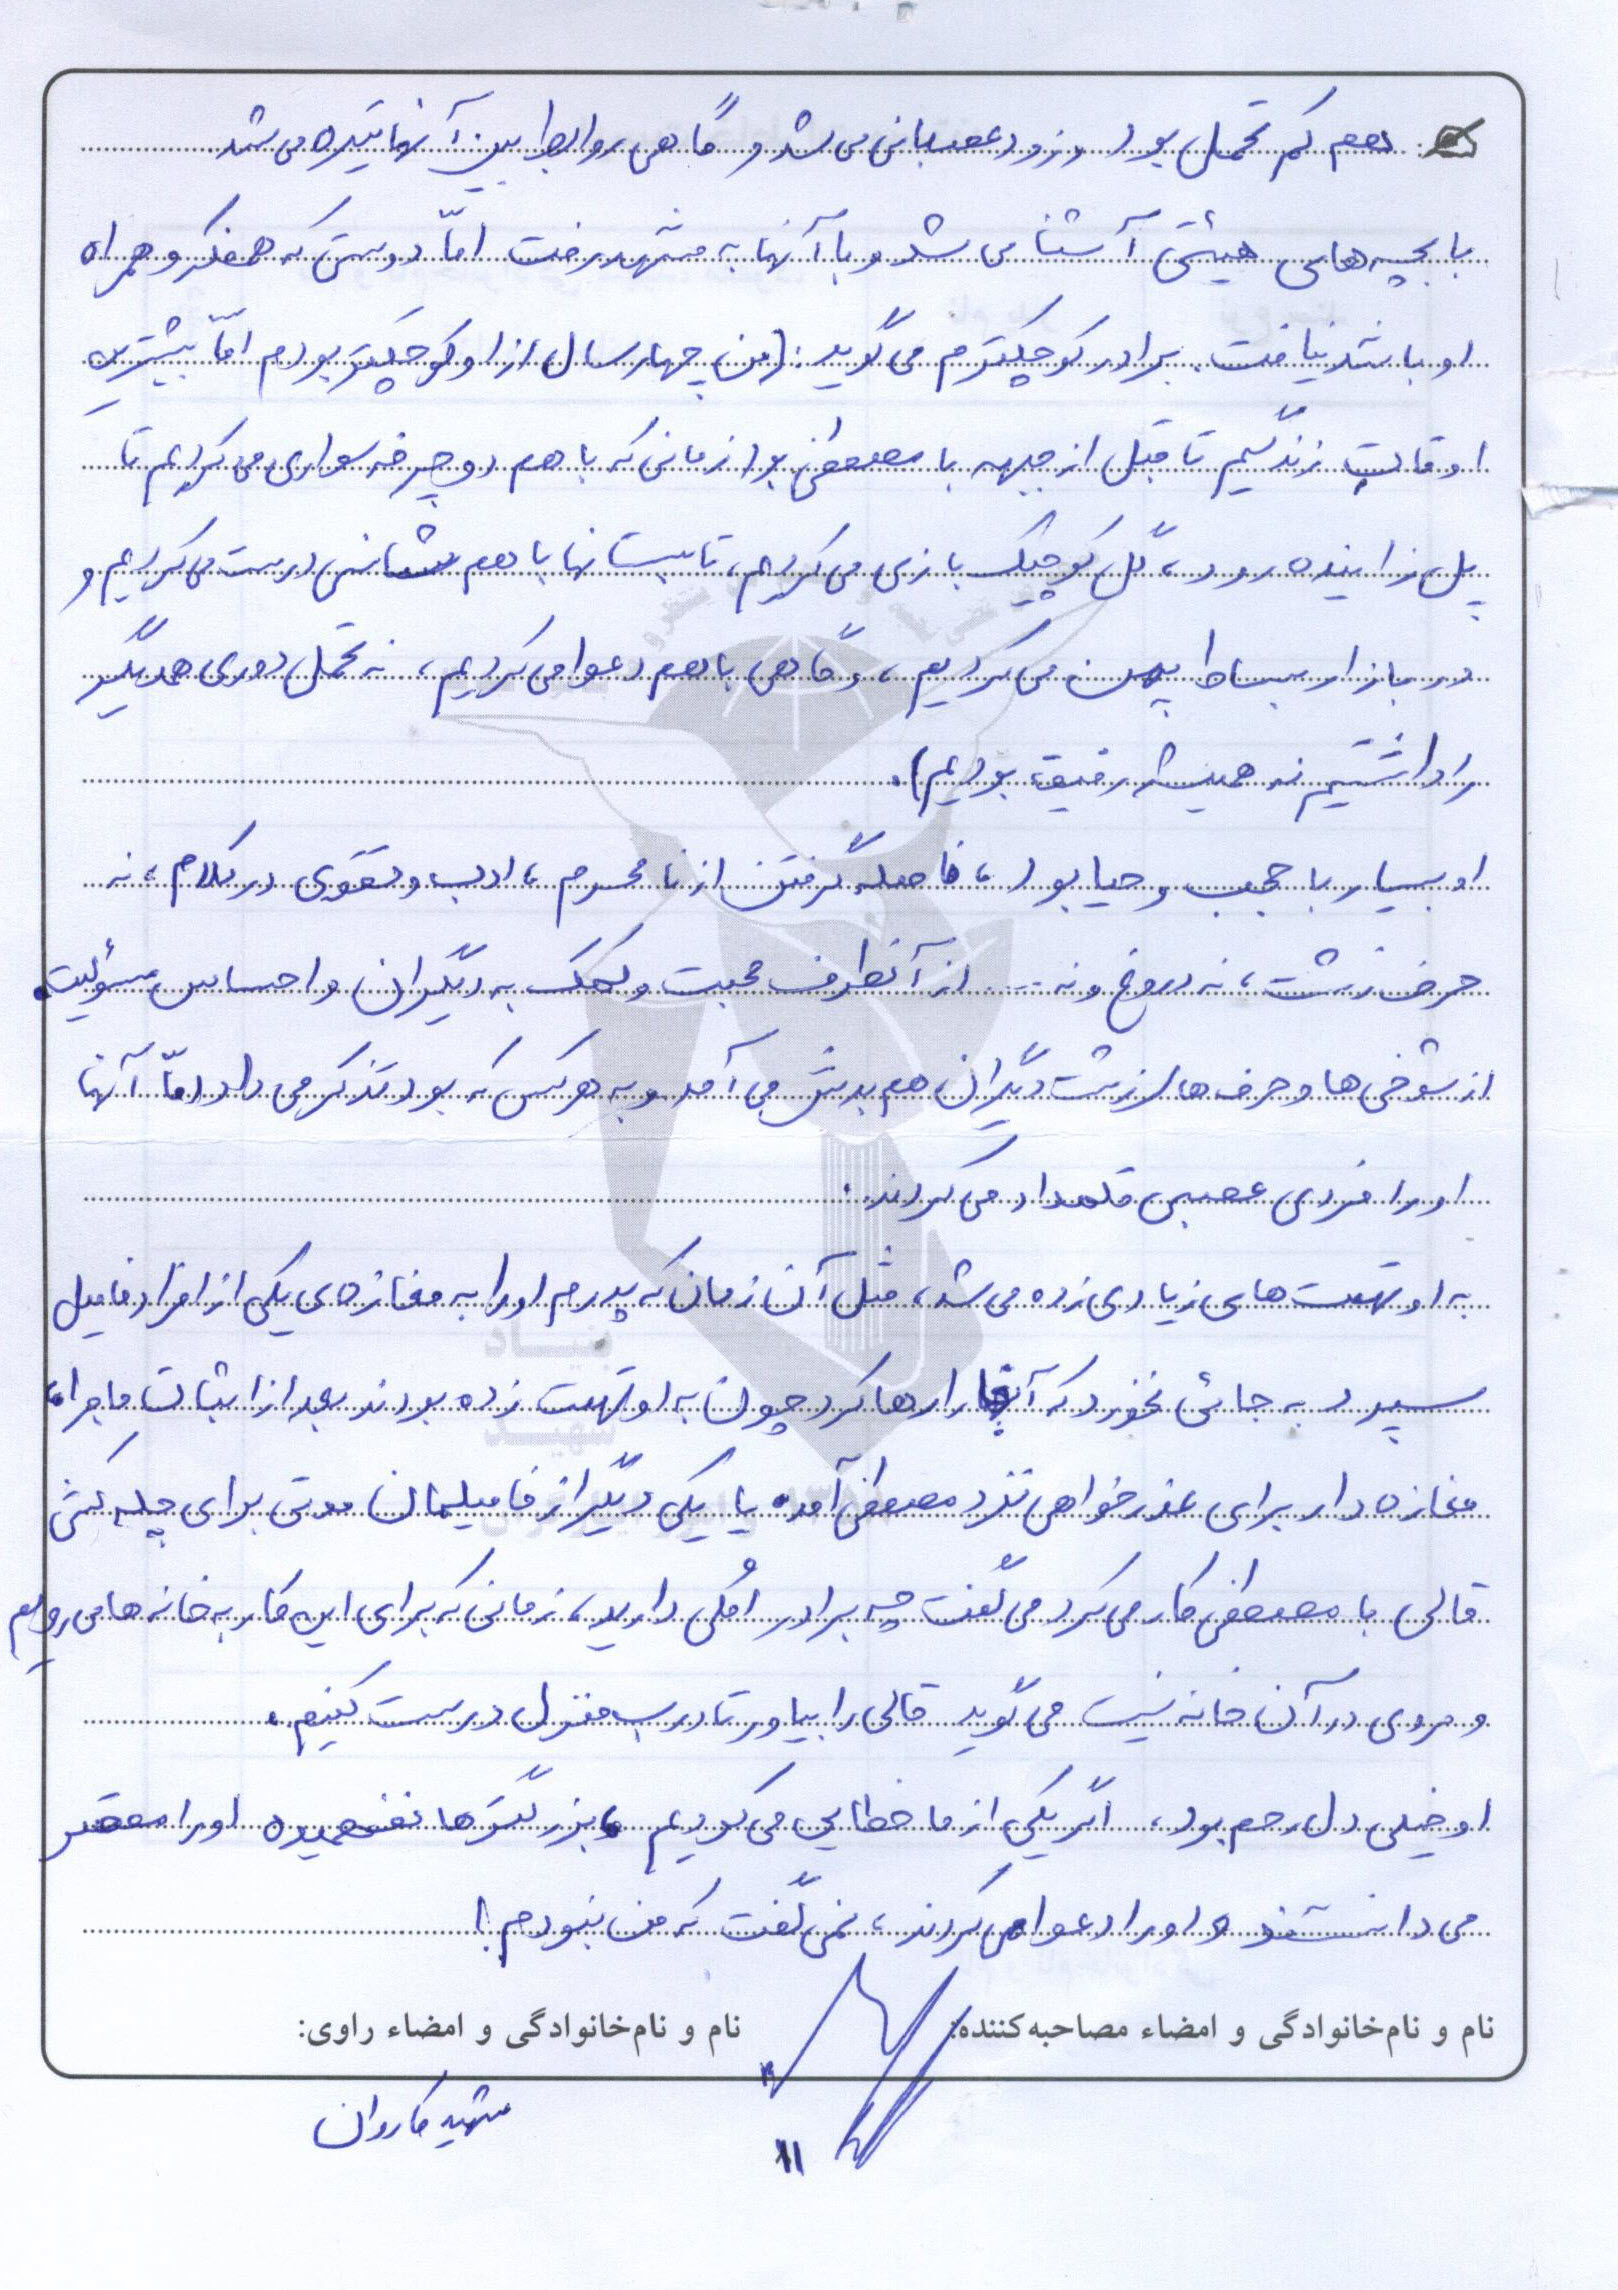 هم کم تحمل بود و زود عصبانی می شد و گاهی روابط بین آنها تیره می شد.
با بچه های هیئتی آشنا می شد و با آنها به مشهد رفت اما دوستی که همفکر و همراه
او باشد نیافت. برادر کوچکترم می گوید: (من چهار سال از او کوچکتر بودم امّا بیشترین
اوقات زندگیم تا قبل از جبهه با مصطفی بود از زمانی که با هم دوچرخه سواری می کردیم تا
پل زاینده رود، گل کوچیک بازی می کردیم، تابستانها با هم شانسی درست می کردیم و
در بازار بساط پهن می کردیم، و گاهی با هم دعوا می کردیم، نه تحمل دوری همدیگر
را داشتیم نه همیشه رفیق بودیم).
او بسیار با حجب و حیا بود، فاصله گرفتن از نامحرم، ادب و تقوی در کلام، نه
حرف زشت، نه دروغ و نه ... از آنطرف محبت و کمک به دیگران و احساس مسؤلیت.
از شوخی ها و حرف های زشت دیگران هم بدش می آمد و به هر کس که بود تذکر می داد امّا آنها
او را فردی عصبی قلمداد می کردند.
به او تهمت های زیادی زده می شد، مثل آن زمان که پدرم او را به مغازه ی یکی از افراد فامیل
سپرد به جائی نخورد که آنجا را رها کرد چون به او تهمت زده بودند بعد از اثبات ماجرا،
مغازه دار برای عذرخواهی نزد مصطفی آمد. یا یکی دیگر از فامیلمان مدتی برای چله کشی
قالی با مصطفی کار می کرد می گفت چه برادر اُمُلی دارید، زمانی که برای این کار به خانه ها می رویم
و مردی در آن خانه نیست می گوید قالی را بیاور تا درب منزل درست کنیم.
او خیلی دل رحم بود، اگر یکی از ما خطایی می کردیم و بزرگترها نفهمیده او را مقصر
می دانستند و او را دعوا می کردند، نمی گفت که من نبودم!
نام و نام خانوادگی و امضاء مصاحبه کننده: نام و نام خانوادگی و امضاء راوی:
شهید کاروان
۱۱
بنیاد
شهید